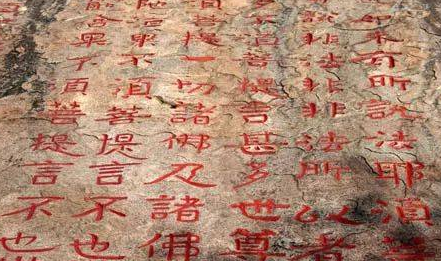 有所說法耶須菩
非法非非法所以者
須菩提言甚多世尊
菩提一切諸佛及諸佛
洹果不須菩提言不也
含果不須菩提言不也